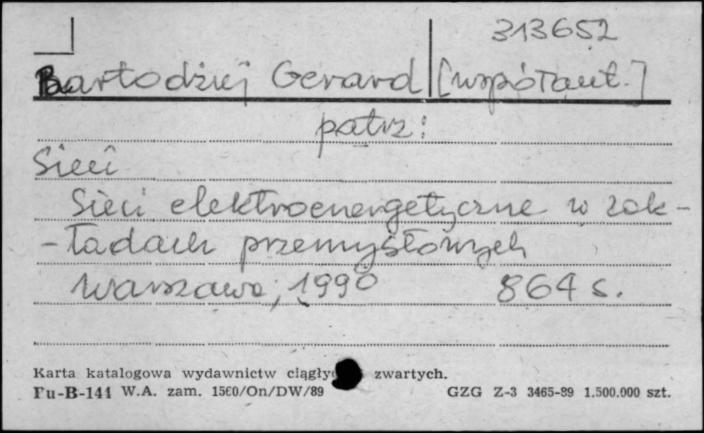 313652
Bartodziej Gerard [współaut.]
patrz:
Sieci
Sieci elektroenergetyczne w zak-
-ładach przemysłowych
Warszawa, 1990 864 s.
Karta katalogowa wydawnictw ciągły zwartych.
Pu-B-141 W.A. zam. 1560/On/DW/89 GZG Z-3 3465-89 1.500.000 szt.